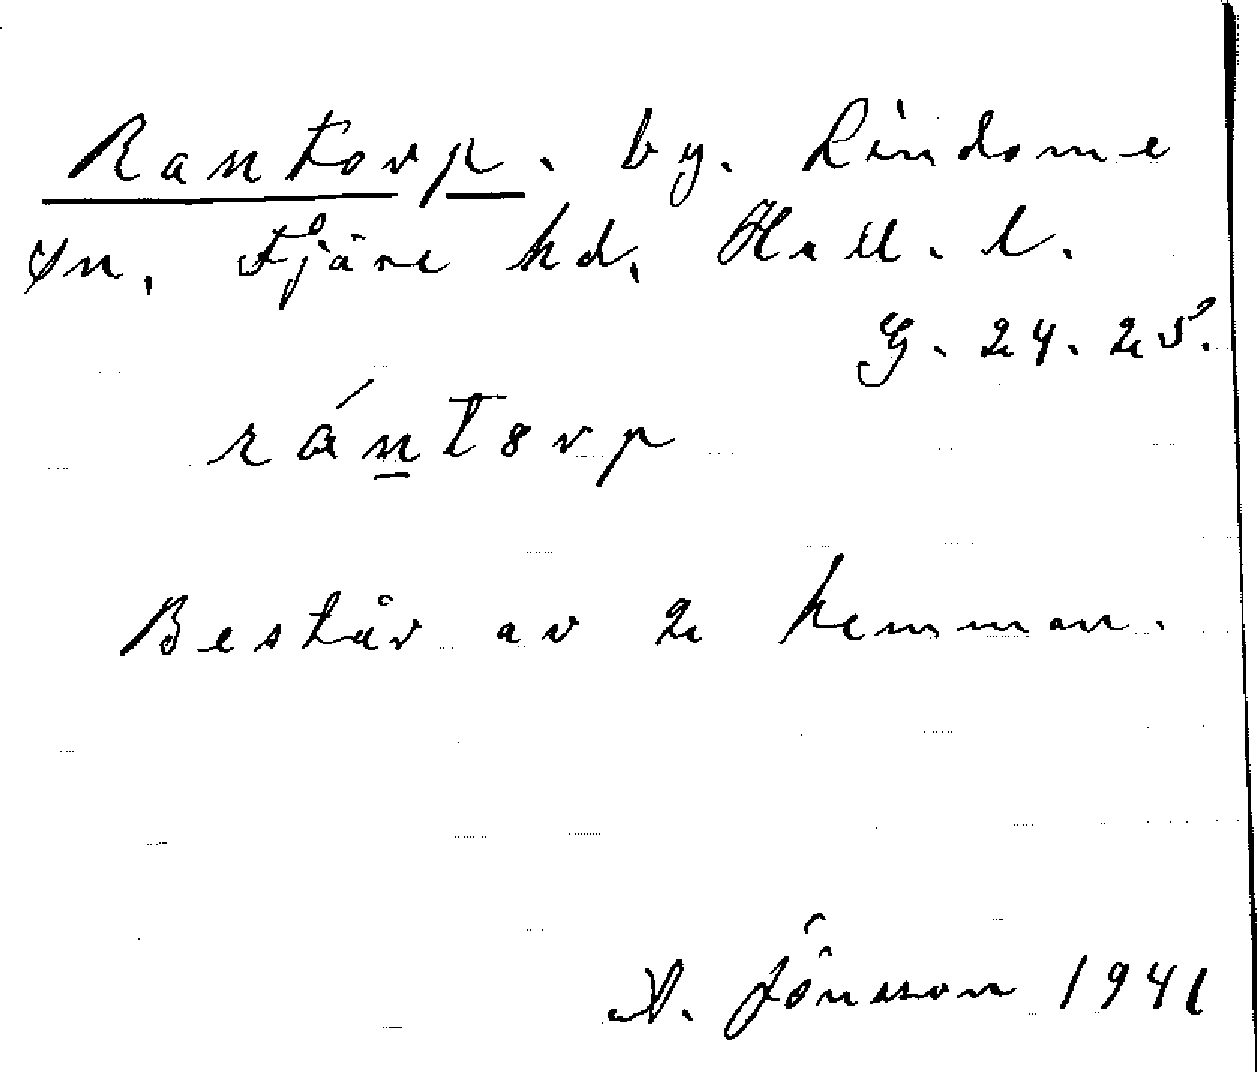 Rantorp. by. Lindome
sn. Fjäre hd. Hall. l.
G. 24. 25.
rántorp
Består av 2 hemman.
A. Jönsson 1941